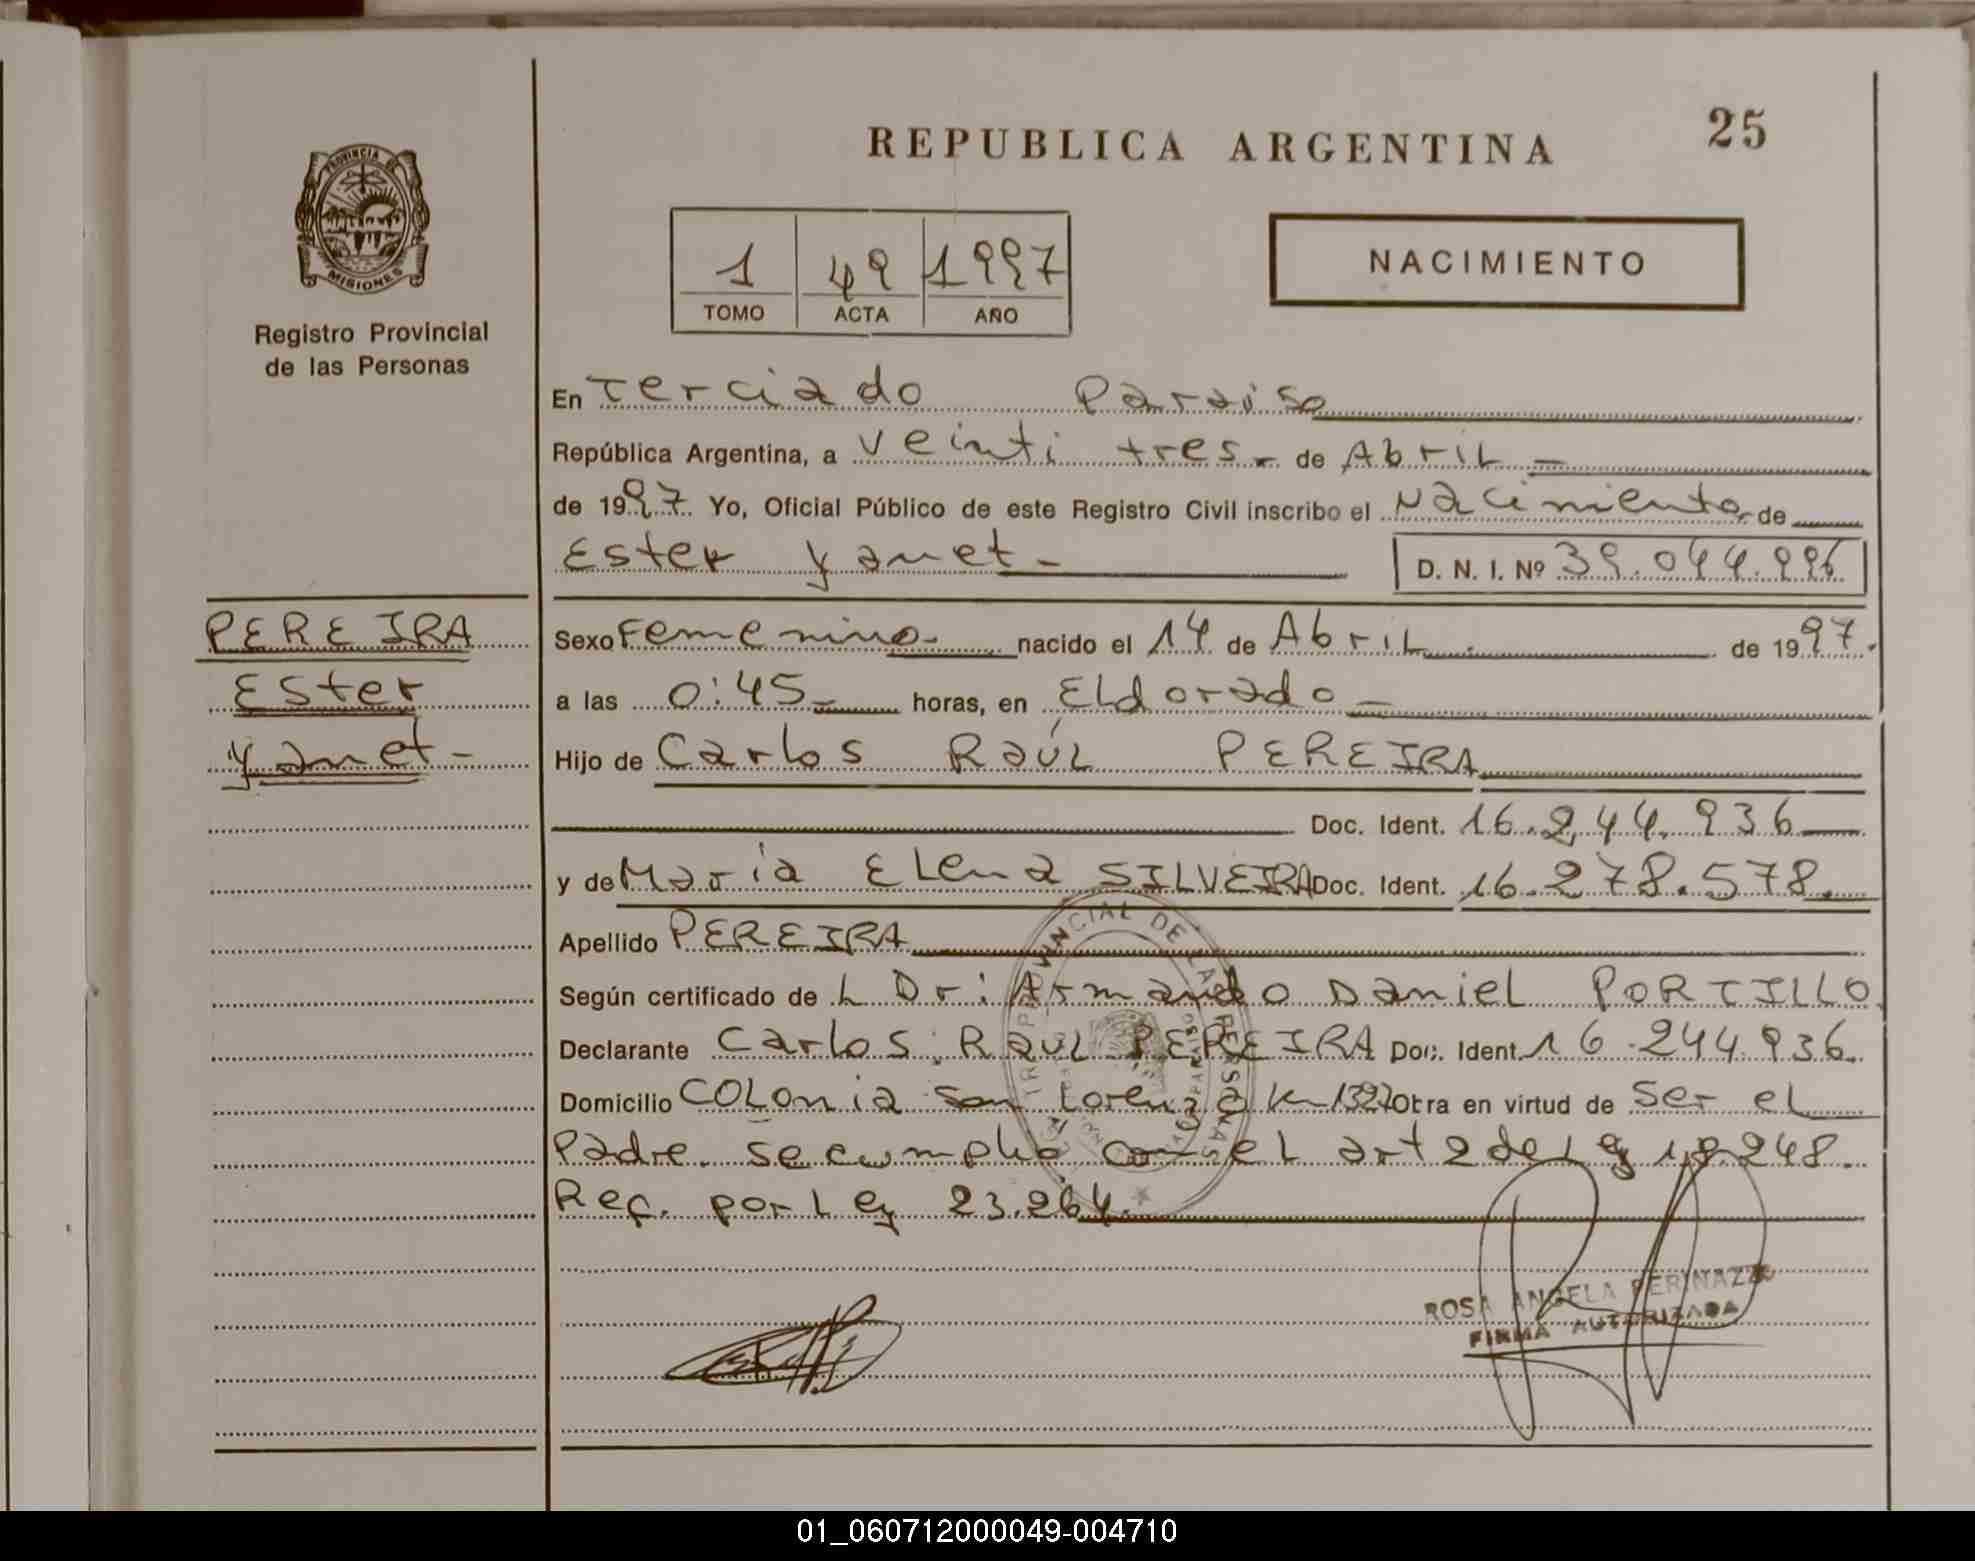 REPUBLICA ARGENTINA
25
PROVINCIA DE
MISIONES
Registro Provincial
de las Personas
1 49 1997
TOMO ACTA AÑO
NACIMIENTO
En Terciado Paraiso
República Argentina, a Veinti tres de Abril
de 1997 Yo, Oficial Público de este Registro Civil inscribo el Nacimiento de
Ester Yanet
D. N. I. Nº 39.044.996
PEREIRA
Ester
Yanet
Sexo Femenino nacido el 14 de Abril de 1997.
a las 0:45 horas, en Eldorado
Hijo de Carlos Raúl PEREIRA
Doc. Ident. 16.244.936
y de María Elena SILVEIRA Doc. Ident. 16.278.578.
Apellido PEREIRA
Según certificado de L Dr: Armando Daniel PORTILLO
Declarante Carlos Raúl PEREIRA Doc. Ident. 16.244.936.
Domicilio Colonia San Lorenzo Otra en virtud de ser el
Padre. Se cumplió con el art 2 de Ley 18.248.
Ref. por Ley 23.264.
ROSA ANGELA PERINAZZO
FIRMA AUTORIZADA
01_060712000049-004710